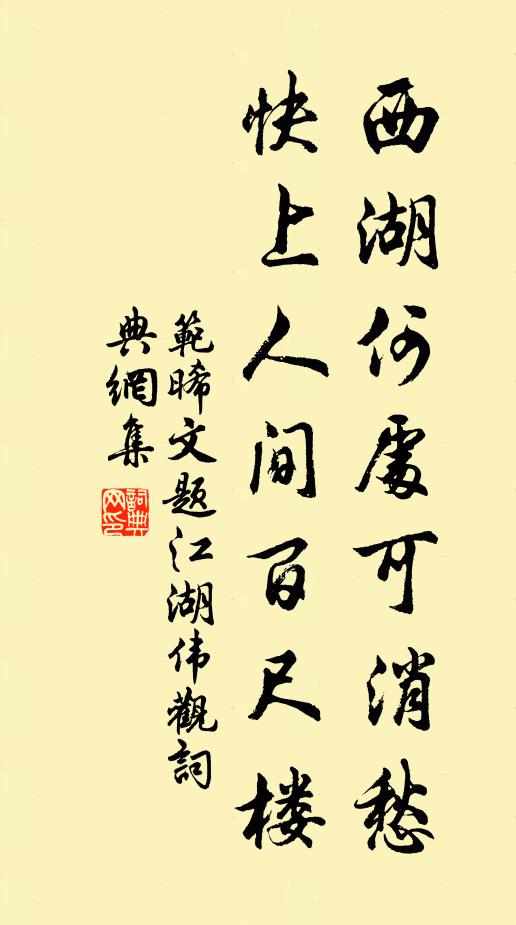 西湖何處可消愁
快上人间百尺楼
範晞文题江湖伟觀詞
典網集
詞典网印